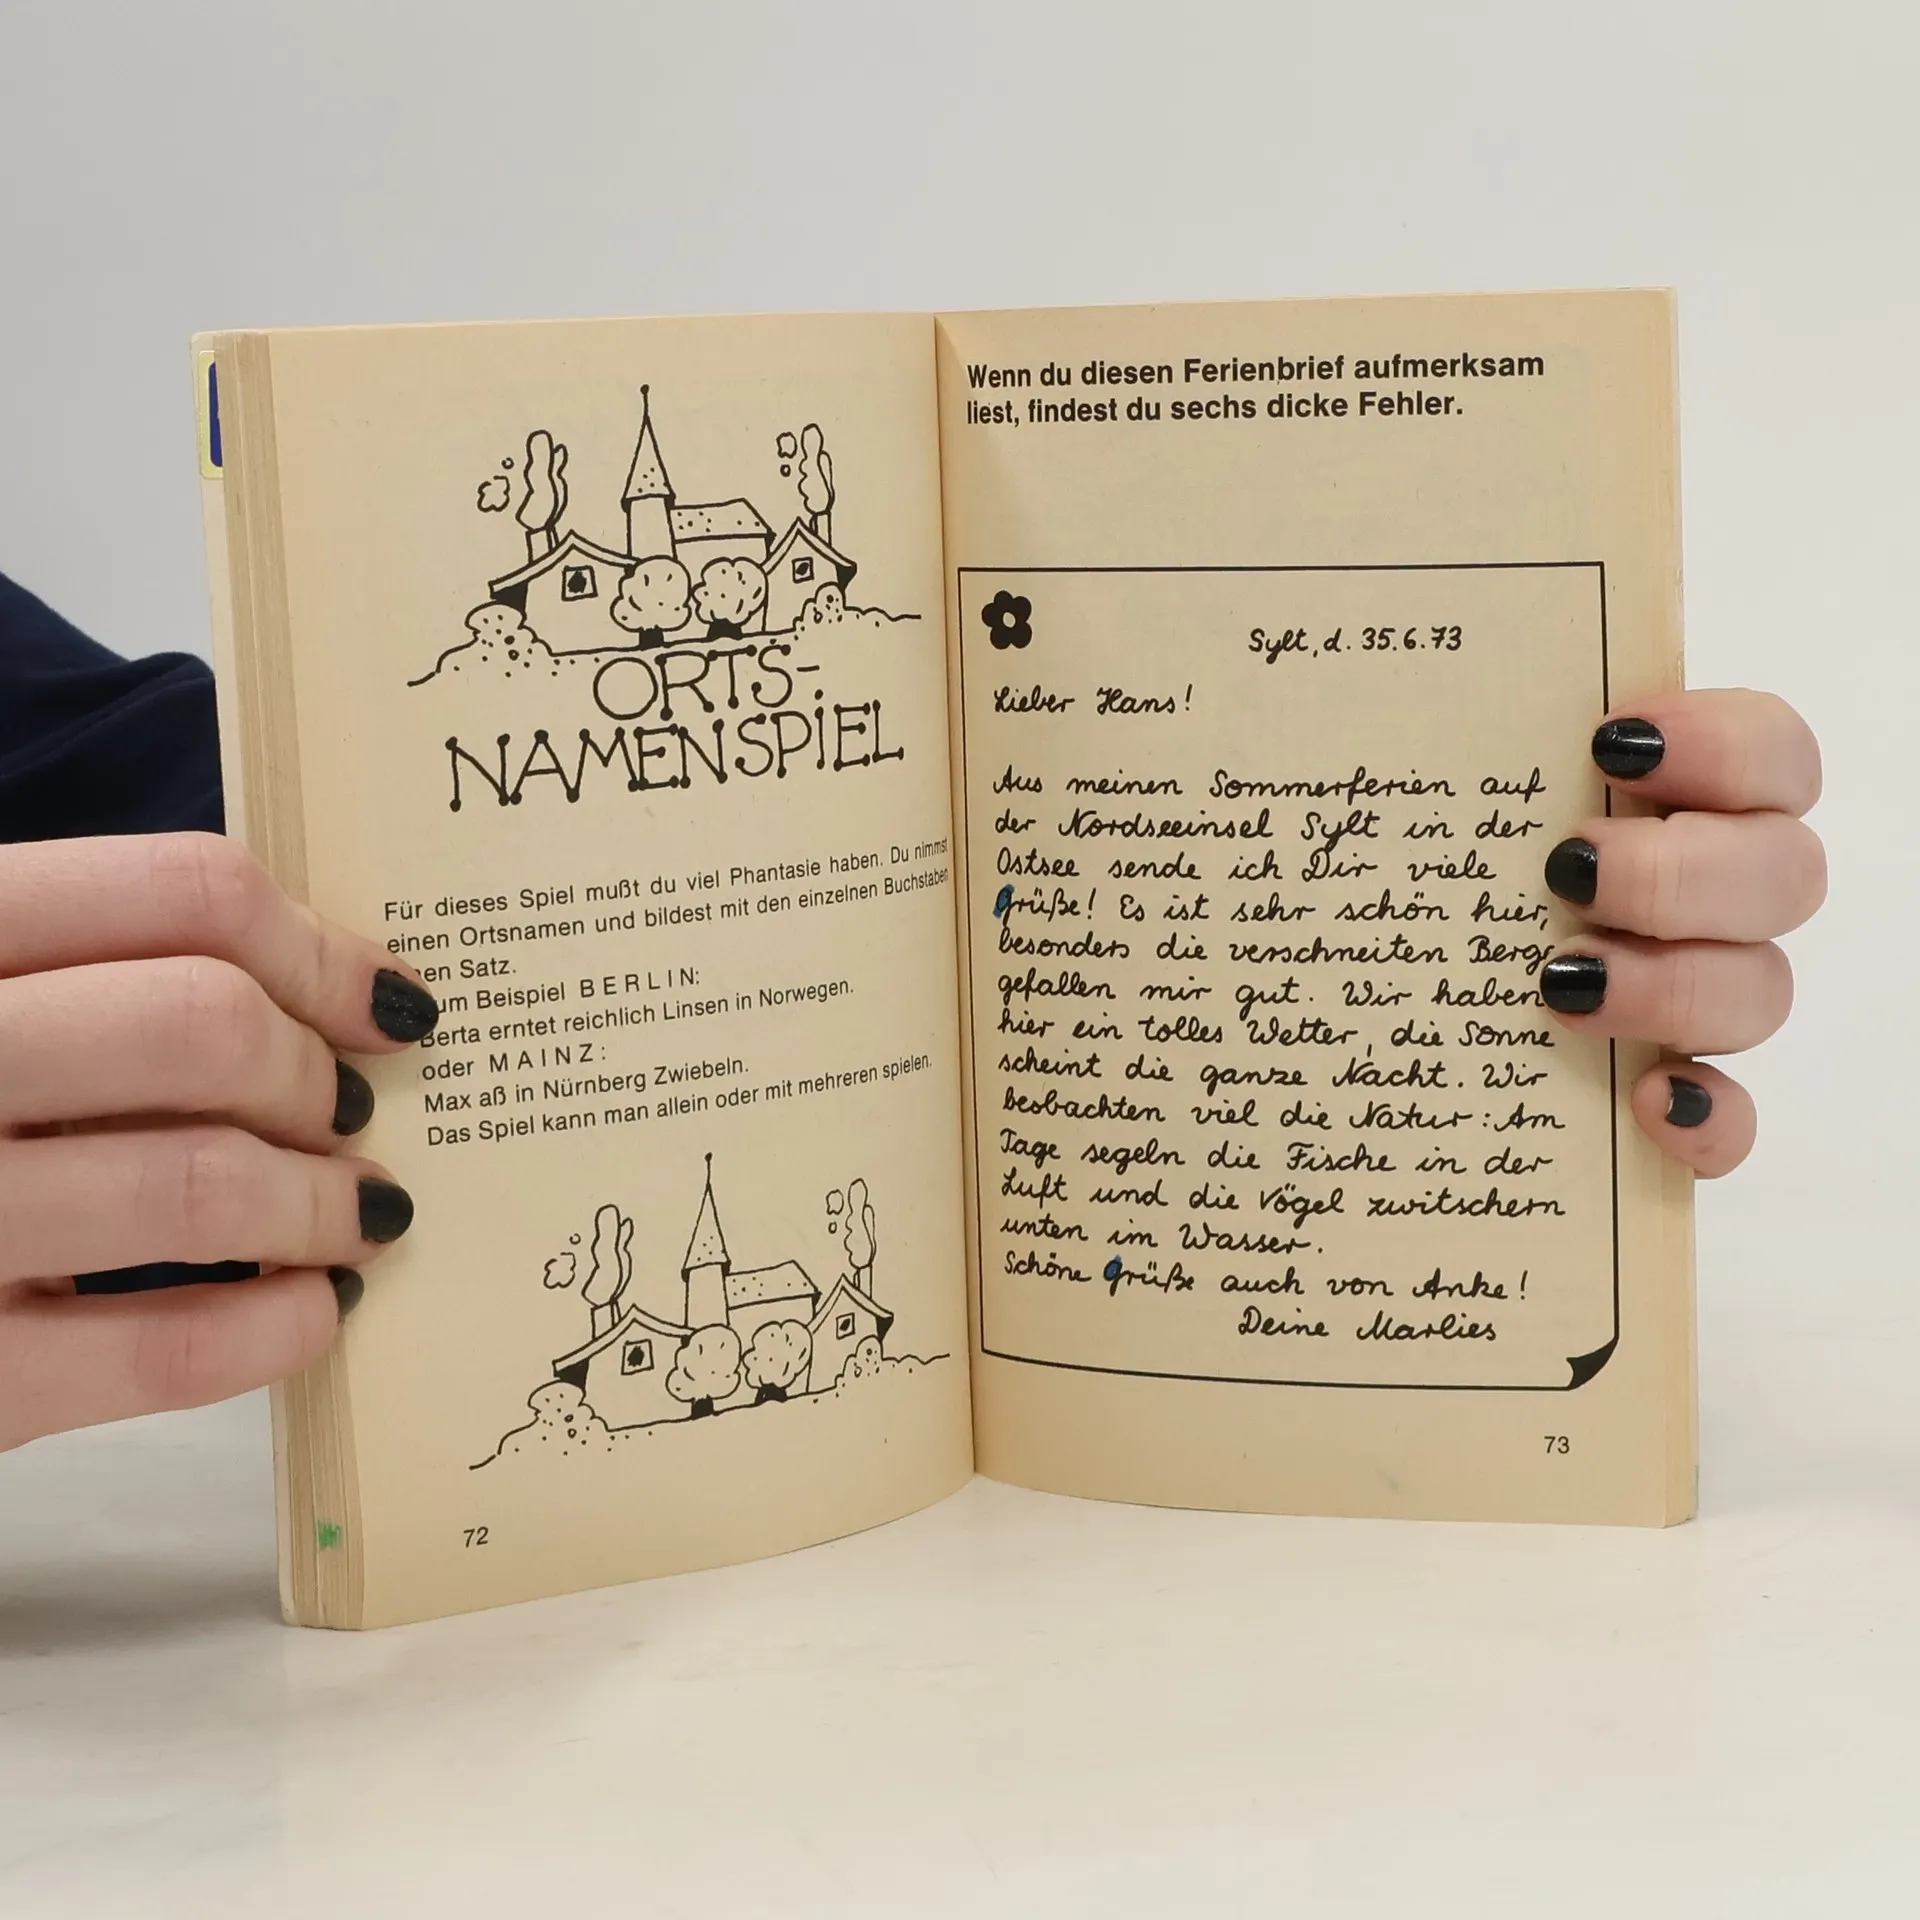 ORTS-
NAMENSPIEL
Für dieses Spiel mußt du viel Phantasie haben. Du nimmst
einen Ortsnamen und bildest mit den einzelnen Buchstaben
Satz.
Beispiel B E R L I N:
Berta erntet reichlich Linsen in Norwegen.
oder M A I N Z :
Max aß in Nürnberg Zwiebeln.
Das Spiel kann man allein oder mit mehreren spielen.
72
Wenn du diesen Ferienbrief aufmerksam
liest, findest du sechs dicke Fehler.
Sylt, d. 35.6.73
Lieber Hans!
Aus meinen Sommerferien auf
der Nordseeinsel Sylt in der
Ostsee sende ich Dir viele
Grüße! Es ist sehr schön hier,
besonders die verschneiten Berge
gefallen mir gut. Wir haben
hier ein tolles Wetter, die Sonne
scheint die ganze Nacht. Wir
beobachten viel die Natur: Am
Tage segeln die Fische in der
Luft und die Vögel zwitschern
unten im Wasser.
Schöne Grüße auch von Anke!
Deine Marlies
73